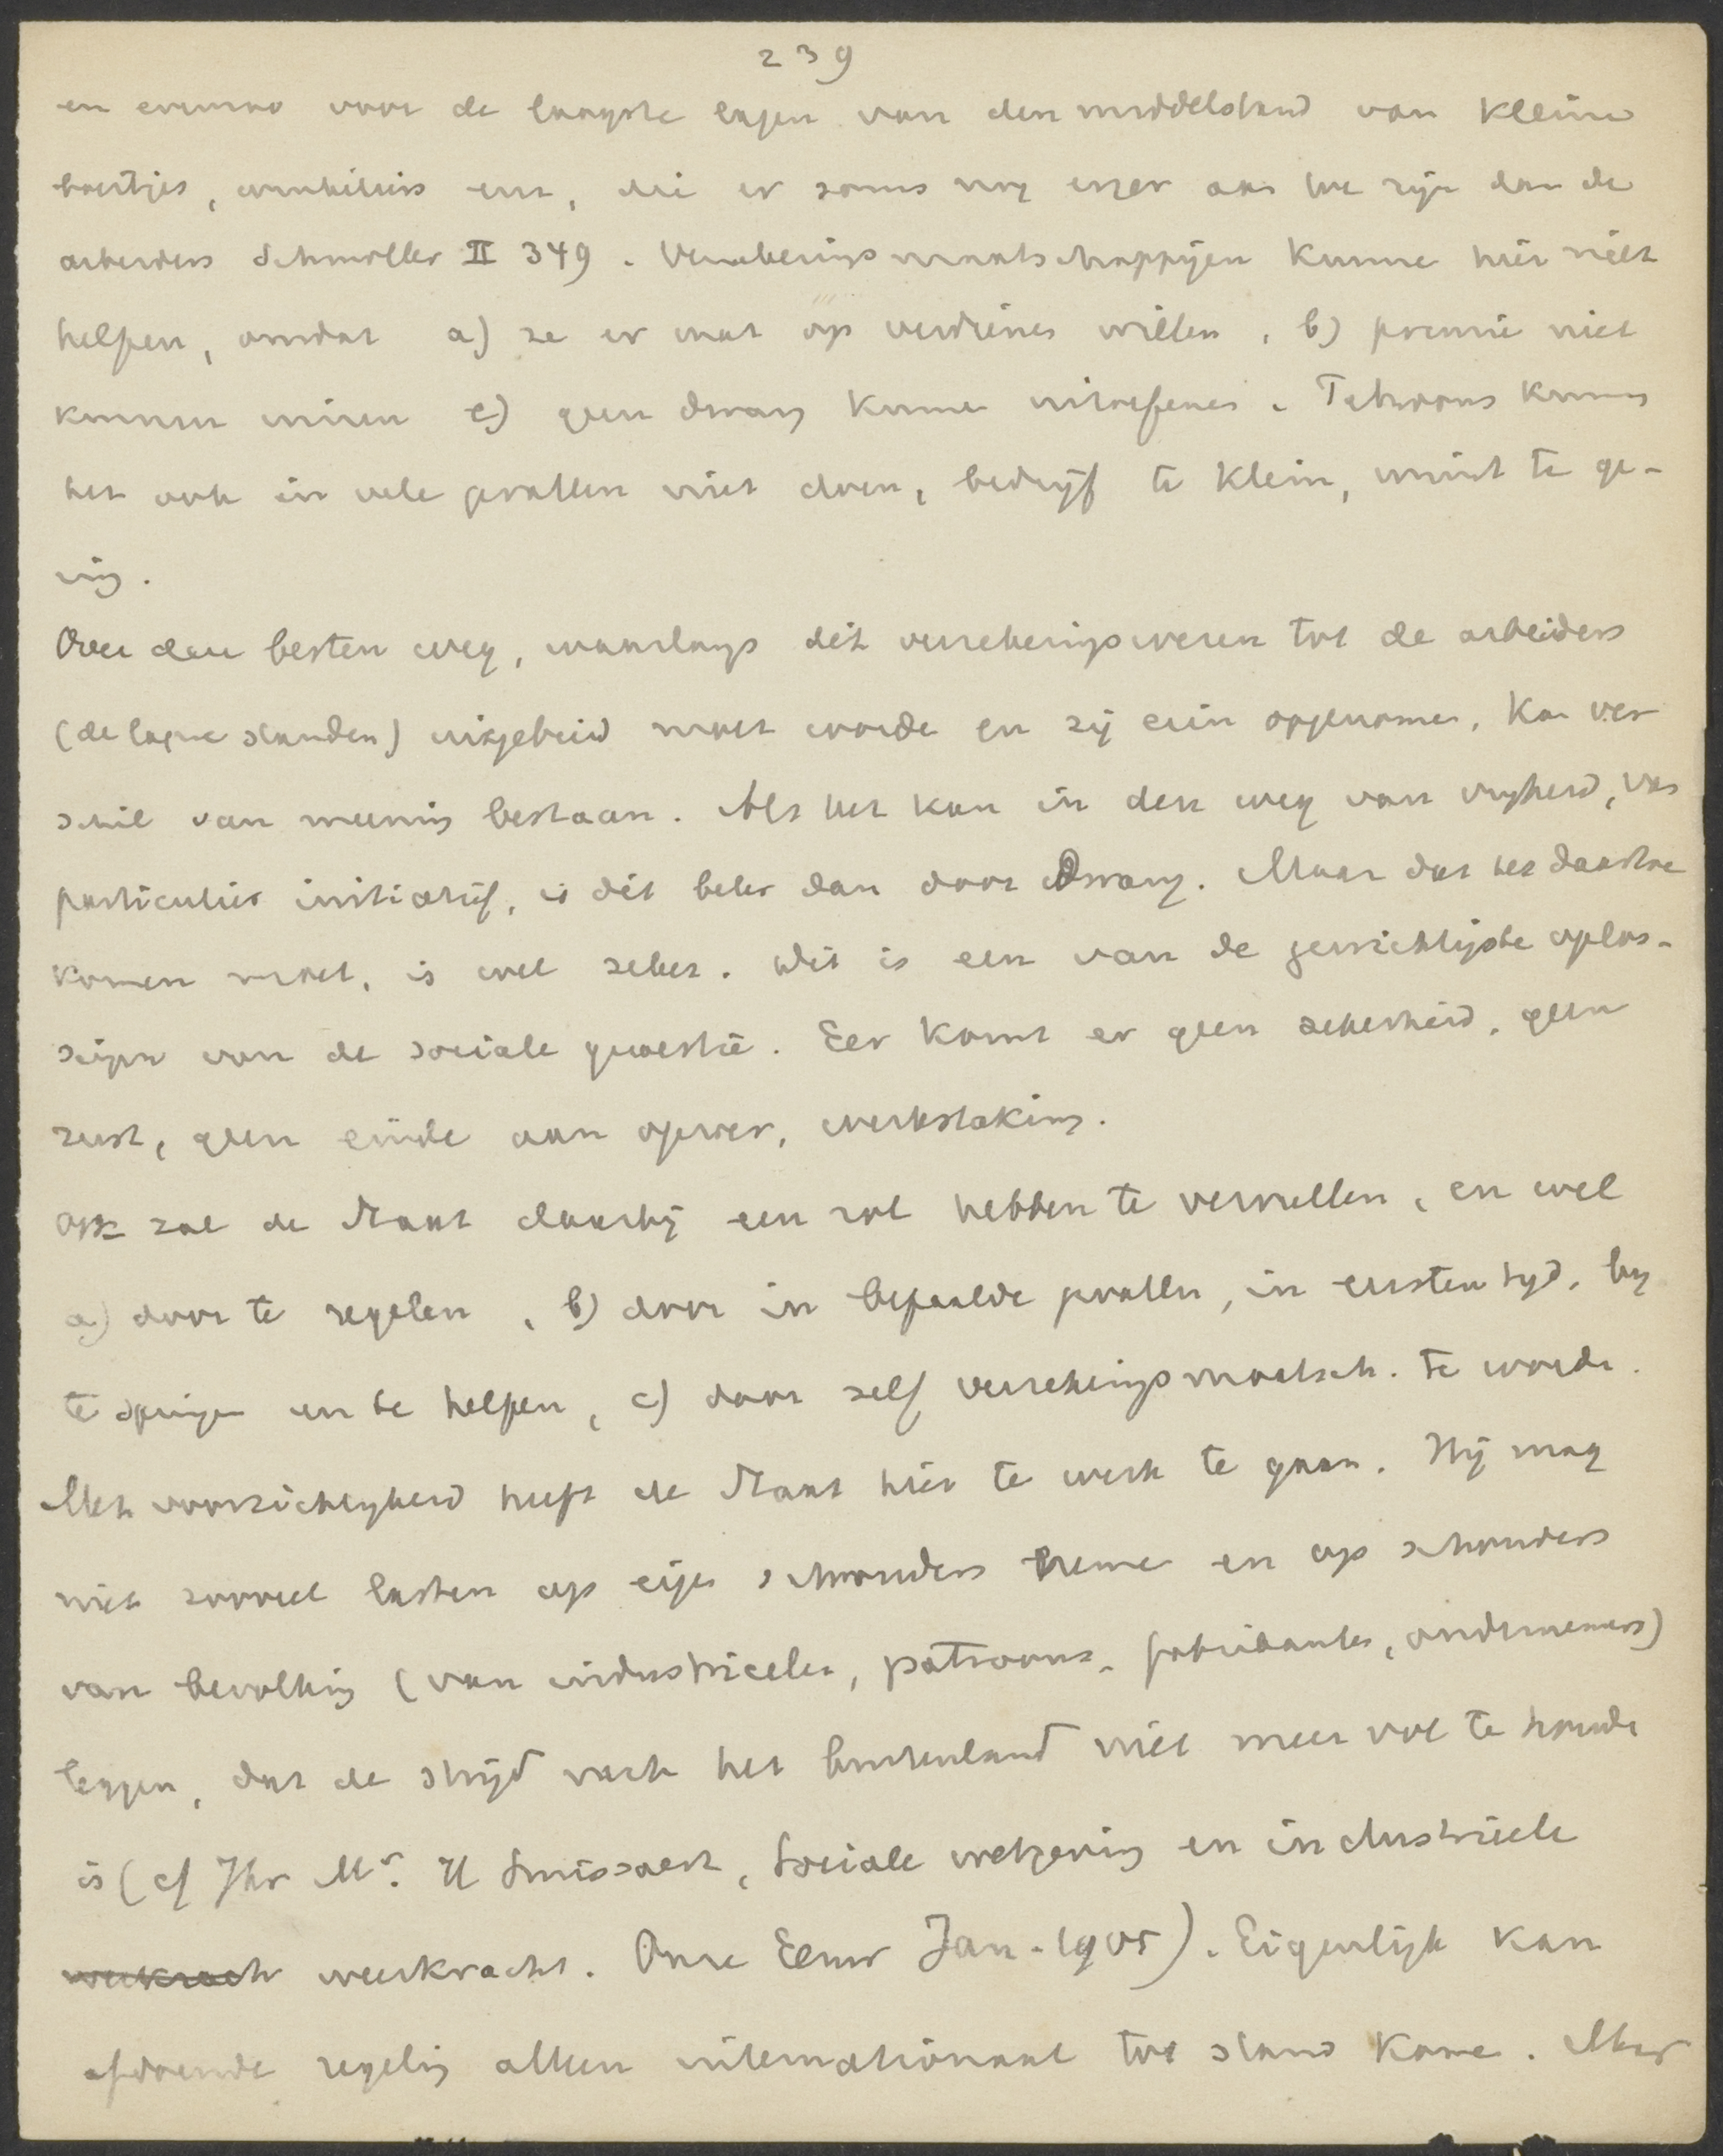 239
en evenzoo voor de laagste lagen van den middelstand van kleine
boertjes, winkeliers enz, die er soms nog erger aan toe zijn dan de
arbeiders Schmoller II 349. Verzekeringsmaatschappijen kunne hier niet
helpen, omdat a) ze er wat op verdienen willen, b) premie niet
kunnen innen c) geen dwang kunne uitoefenen. Patroons kunnen
het ook in vele gevallen niet doen, bedrijf te klein, winst te ge-
ring.
Over den besten weg, waarlangs dit verzekeringswezen tot de arbeiders
(de lagere standen) uitgebreid moet worde en zij erin opgenomen, kan ver
schil van meening bestaan. Als het kan in den weg van vrijheid, van
particulier initiatief, is dit beter dan door dwang. Maar dat het daartoe
komen moet, is wel zeker. Dit is een van de gewichtigste oplos-
singen van de sociale quaestie. Eer komt er geen zekerheid, geen
rust, geen einde aan oproer, werkstaking.
Ook zal de Staat daarbij een rol hebben te vervullen, en wel
a) door te regelen, b) door in bepaalde gevallen, in eersten tijd, bij
te springen en te helpen, c) door zelf verzekeringsmaatsch. te worde.
Met voorzichtigheid heeft de Staat hier te werk te gaan. Hij mag
niet zooveel lasten op eigen schouders neme en op schouders
van bevolking (van industrieelen, patroons, fabrikanten, ondernemers)
leggen, dat de strijd met het buitenland niet meer vol te houde
is (cf Jhr Mr. H Smissaert, Sociale wetgeving en industrieele
weerkracht. Onze Eeuw Jan. 1905). Eigenlijk kan
afdoende regeling alleen internationaal tot stand kome. Maar